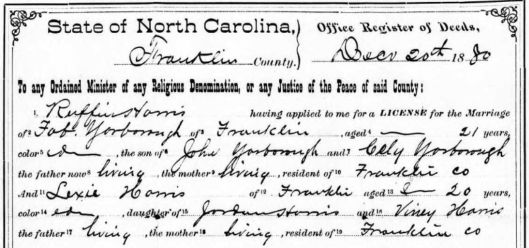 State of North Carolina, Office Register of Deeds,
Franklin County. Decr 20th 1880
To any Ordained Minister of any Religious Denomination, or any Justice of the Peace of said County:
1 Ruffin Harris having applied to me for a LICENSE for the Marriage
of 2 Fab. Yorborough of 3 Franklin, aged 4 21 years,
color 5 col, the son of 6 John Yorborough and 7 Cely Yorborough
the father now 8 living, the mother 9 living, resident of 10 Franklin co
And 11 Lexie Harris of 12 Franklin aged 13 20 years,
color 14 col, daughter of 15 Jordan Harris and 16 Viney Harris
the father 17 living, the mother 18 living, resident of 19 Franklin co